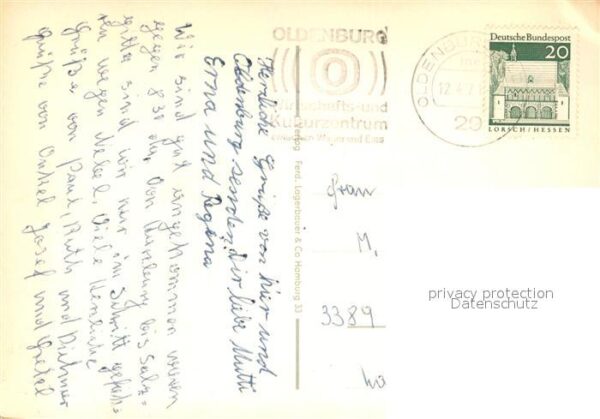 Wir sind gut angekommen waren
gegen 8 30 da. Von Lüneburg bis Salz=
sind wir nur im Schritt gefah=
ren wegen Nebel. Viele Herzliche
Grüße von Paul, Ruth und Dietmar
Grüße von Onkel Josef und Gretel
Herzliche Grüße von hier und
Oldenburg senden Dir liebe Mutti
Erna und Regina
OLDENBURG
Wirtschafts- und
Kulturzentrum
zwischen Weser und Ems
Ferd. Lagerbauer & Co Hamburg 33
OLDENBURG
12.4.7
29
Deutsche Bundespost
20
LORSCH/HESSEN
Frau
M.
3389
privacy protection
Datenschutz